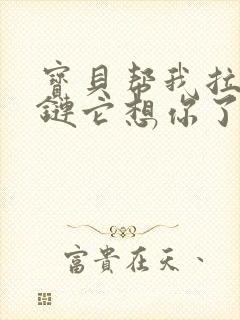 寶貝幫我拉
鏈它想你了
富貴在天、